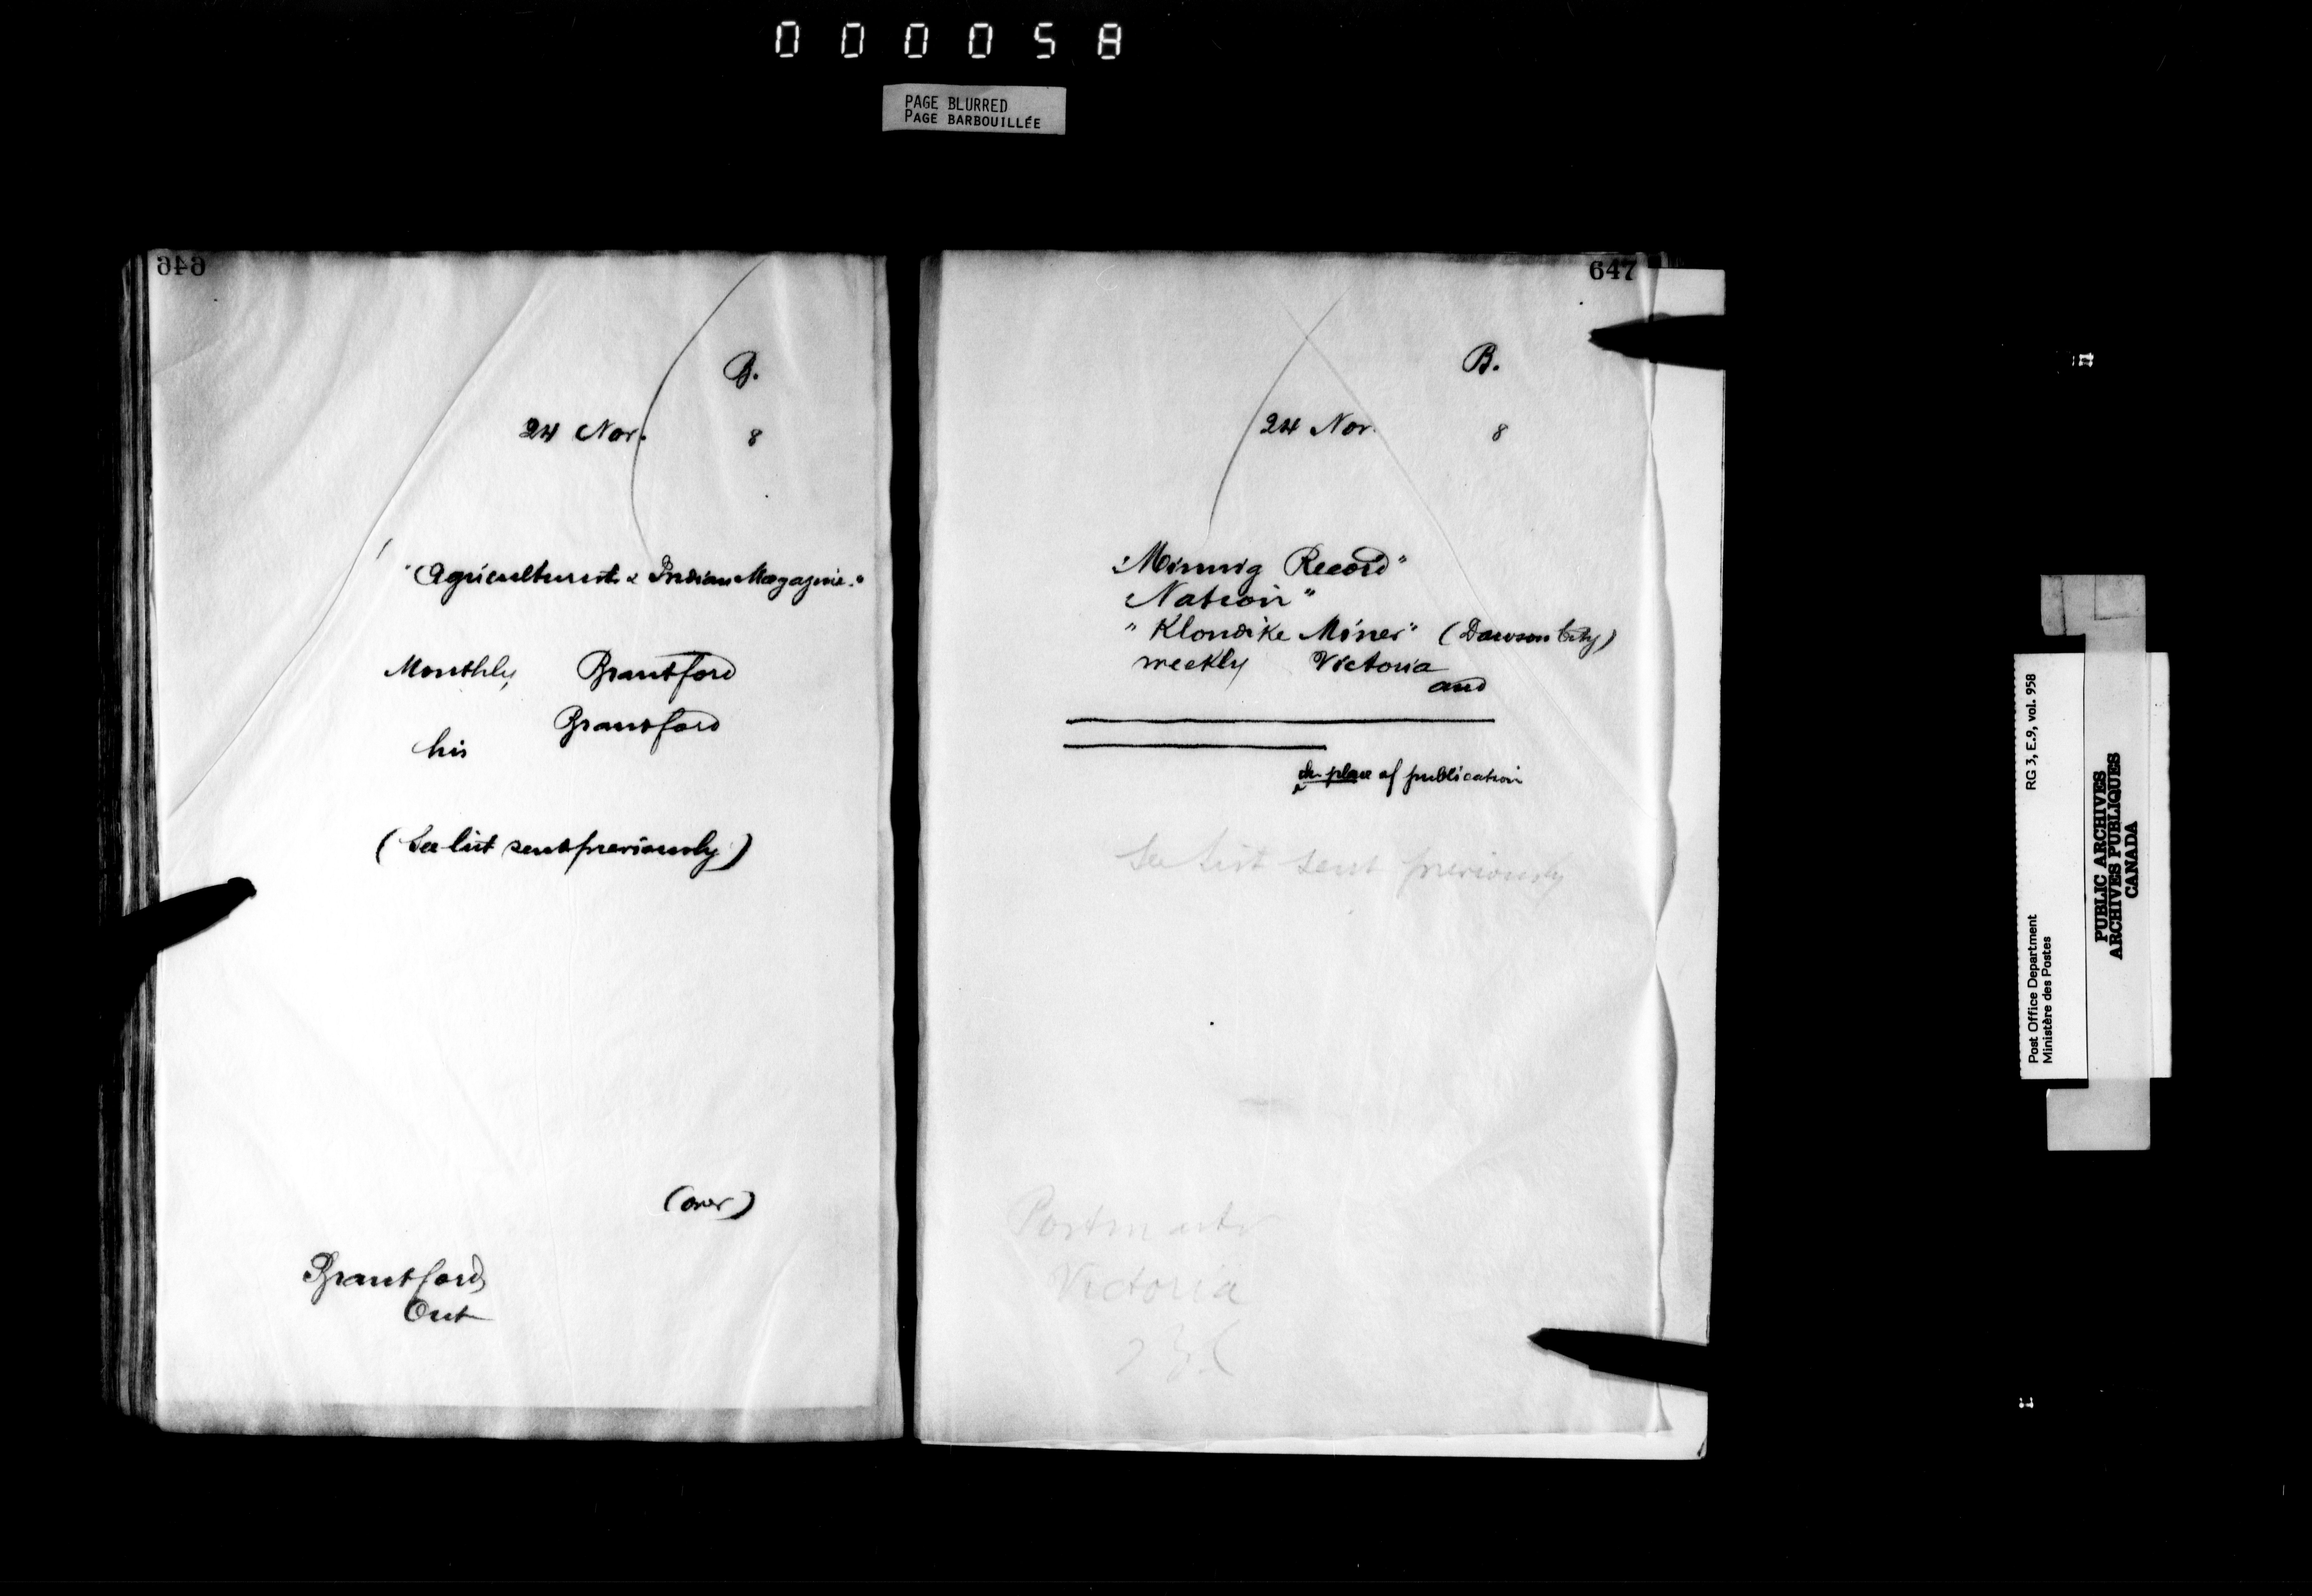 00005A
PAGE BLURRED
PAGE BARBOUILLÉE
646
B.
24 Nov. 8
"Agriculturist & Indian Magazine."
Monthly Brantford
Brantford
his
(See list sent previously)
(over)
Brantford
Ont
647
B.
24 Nov. 8
"Mining Record"
Nation"
"Klondike Miner" (Dawson City)
weekly Victoria
and
place of publication
See List sent previously
Postmaster
Victoria
RG 3, E.9, vol. 958
Post Office Department
Ministère des Postes
PUBLIC ARCHIVES
ARCHIVES PUBLIQUES
CANADA